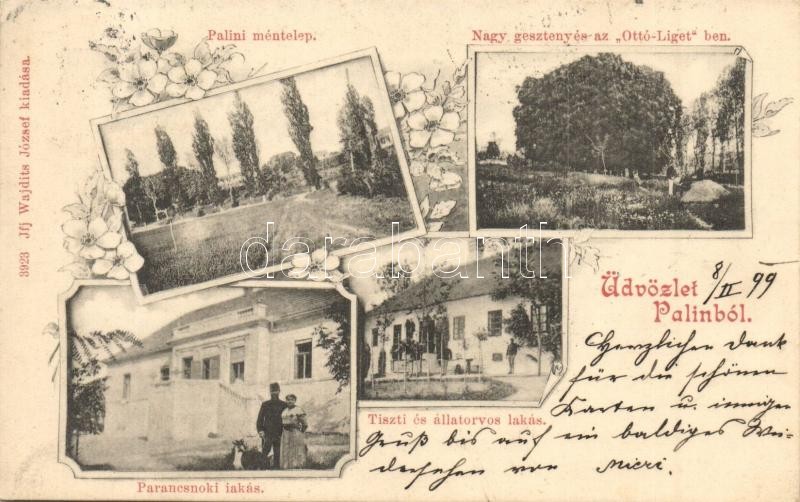 Palini méntelep.
Nagy gesztenyés az „Ottó-Liget" ben.
3923 Jfj Wajdits József kiadása.
darabanth
Üdvözlet
Palinból.
8/II 99
Herzlichen Dank
für die schönen
Karten u. innigen
Gruß bis auf ein baldiges Wie-
dersehen von Micri.
Tiszti és állatorvos lakás.
Parancsnoki iakás.